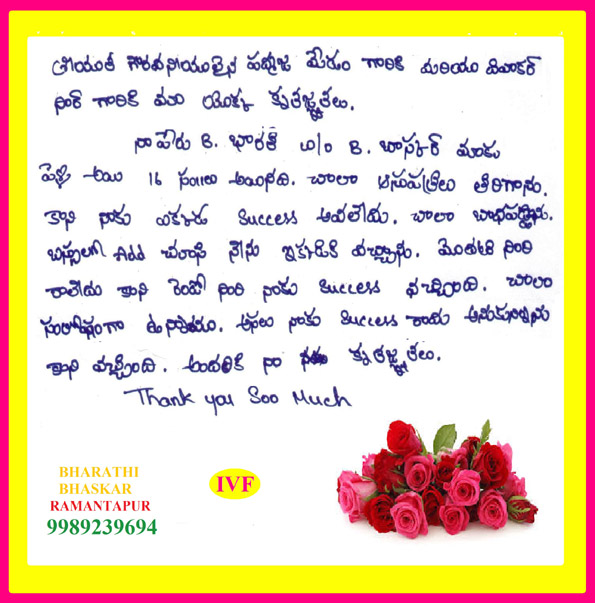 శ్రీయుత గౌరవనీయులైన పద్మజ మేడం గారికి మరియు దివాకర్
సర్ గారికి మా యొక్క కృతజ్ఞతలు.
నా పేరు B. భారతి w/o B. బాస్కర్ మాకు
పెళ్లి అయి 16 సం॥లు అయినది. చాలా ఆసుపత్రిలు తిరిగాను.
కాని నాకు ఎక్కడు Success అవలేదు. చాలా బాధపడ్డాను.
బస్సులో చూసి నేను ఇక్కడికి వచ్చాను. మొదటి సారి
రాలేదు కాని రెండో సారి నాకు Success వచ్చింది. చాలా
సంతోషంగా ఉన్నాము. అసలు నాకు Success రాదు అనుకున్నాను
కాని వచ్చింది. అందరికి నా కృతజ్ఞతలు.
Thank you Soo Much
BHARATHI
BHASKAR
RAMANTAPUR
9989239694
IVF